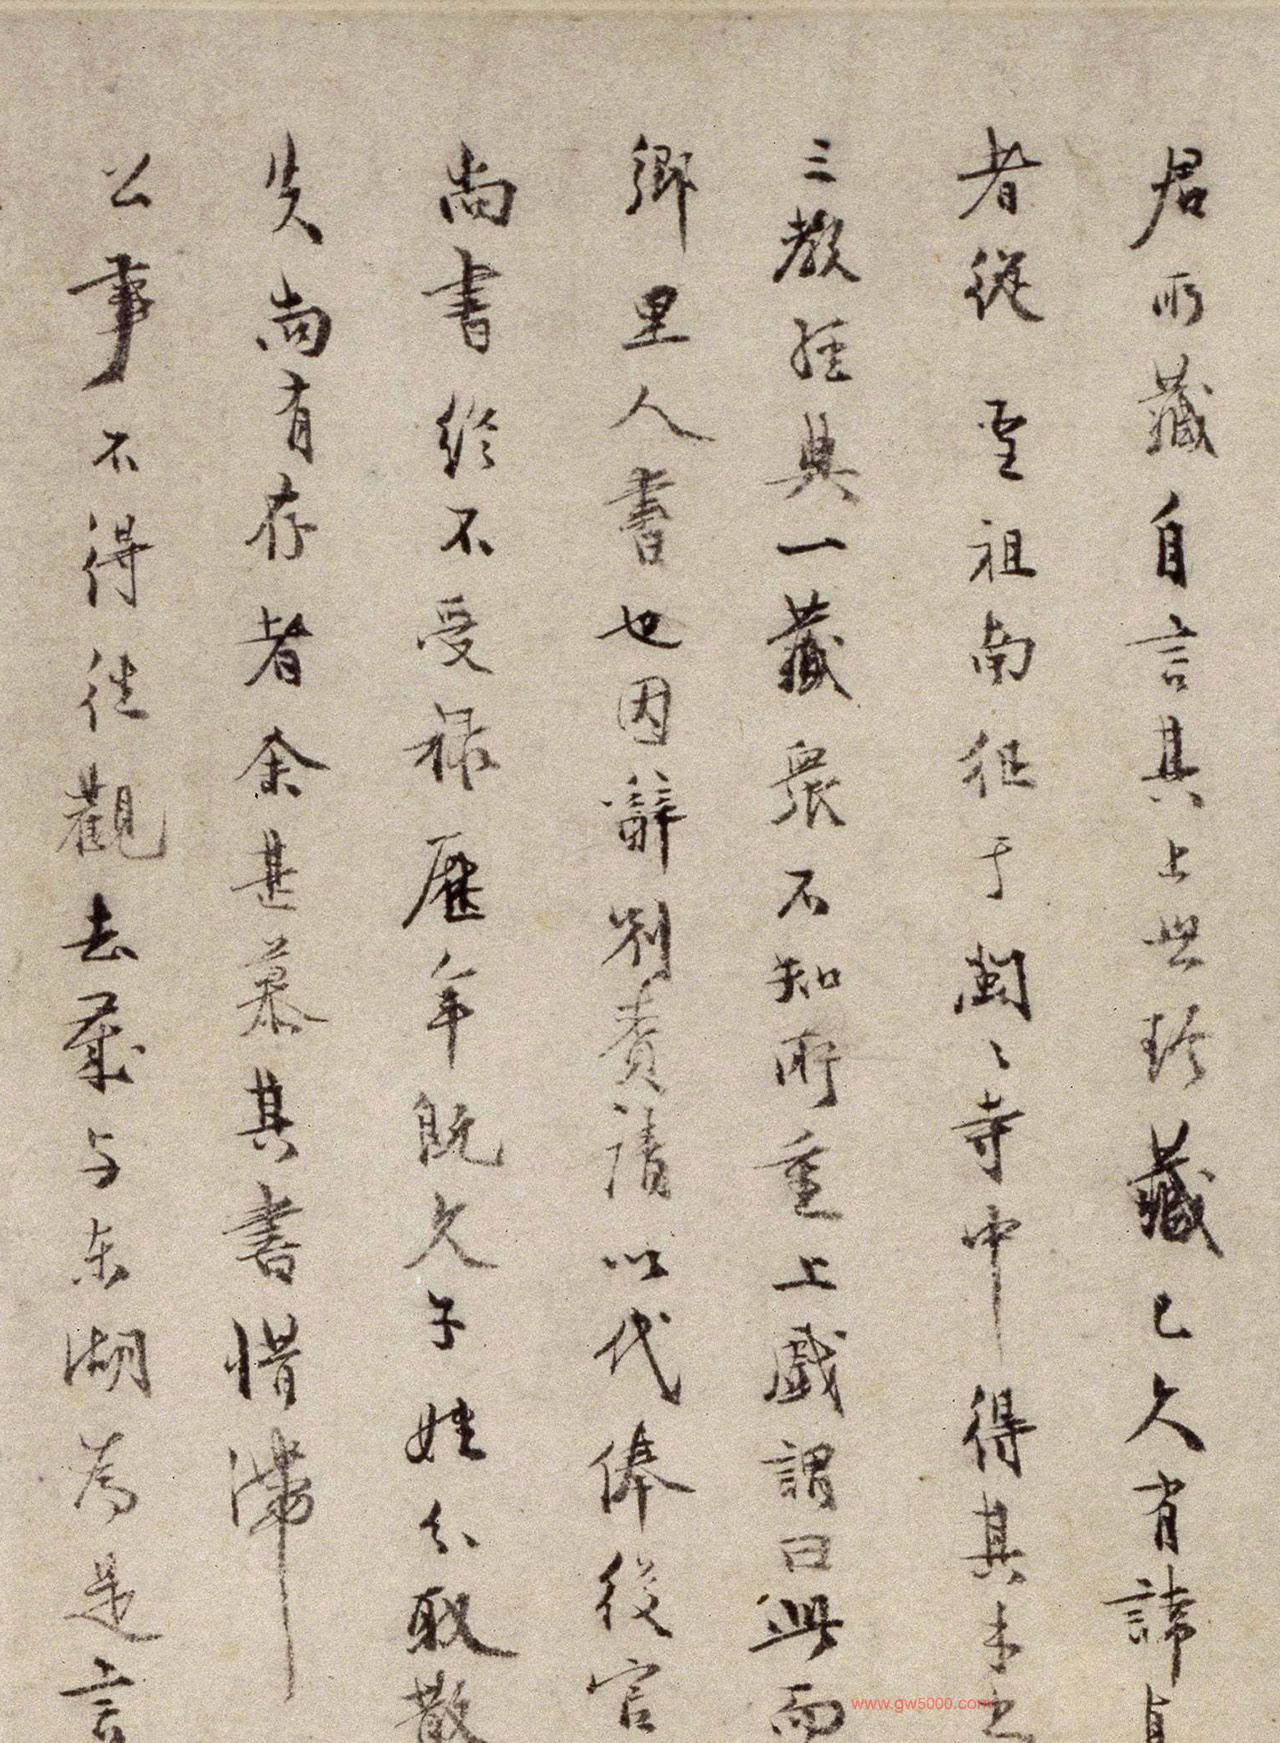 君所藏自言其上世珍藏已久有諱貞
者從聖祖南征于閩〻寺中得其木之
三教經典一藏衆不知所重上戲謂曰此而
鄉里人書也因辭別賚請以代俸後官
尚書終不受禄歷年既久子姓分取散
失尚有存者余甚慕其書惜滯
公事不得往觀去歲与東湖為是言
www.gw5000.com